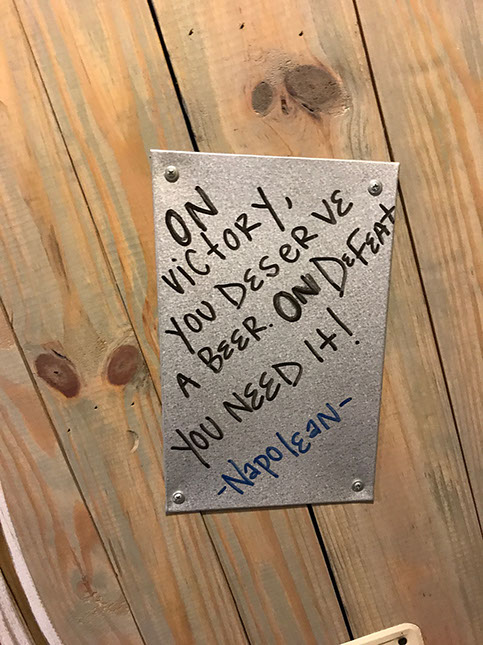 ON
VICTORY,
YOU DESERVE
A BEER. ON DEFEAT
YOU NEED It!
-Napolean-